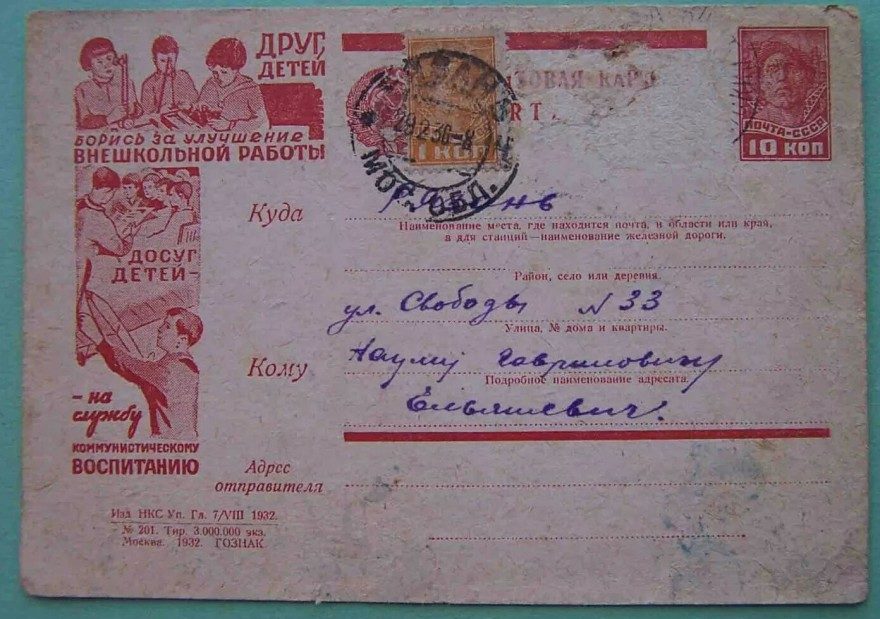 ДРУГ,
ДЕТЕЙ
БОРИСЬ ЗА УЛУЧШЕНИЕ
ВНЕШКОЛЬНОЙ РАБОТЫ
ДОСУГ
ДЕТЕЙ-
-на
службу
КОММУНИСТИЧЕСКОМУ
ВОСПИТАНИЮ
ТОВАЯ КАР
RT
1 КОП
МОС. ОБЛ.
ПОЧТА-СССР
10 КОП
Куда
Рязань
Наименование места, где находится почта, и области или края,
а для станций—наименование железной дороги.
Район, село или деревня.
ул. Свободы N 33
Улица, № дома и квартиры.
Кому
Науму Гавриловичу
Подробное наименование адресата.
Ельяшевич.
Адрес
отправителя
Изд НКС Уп. Гл. 7/VIII 1932.
№ 201. Тир. 3.000.000 экз.
Москва. 1932. ГОЗНАК.